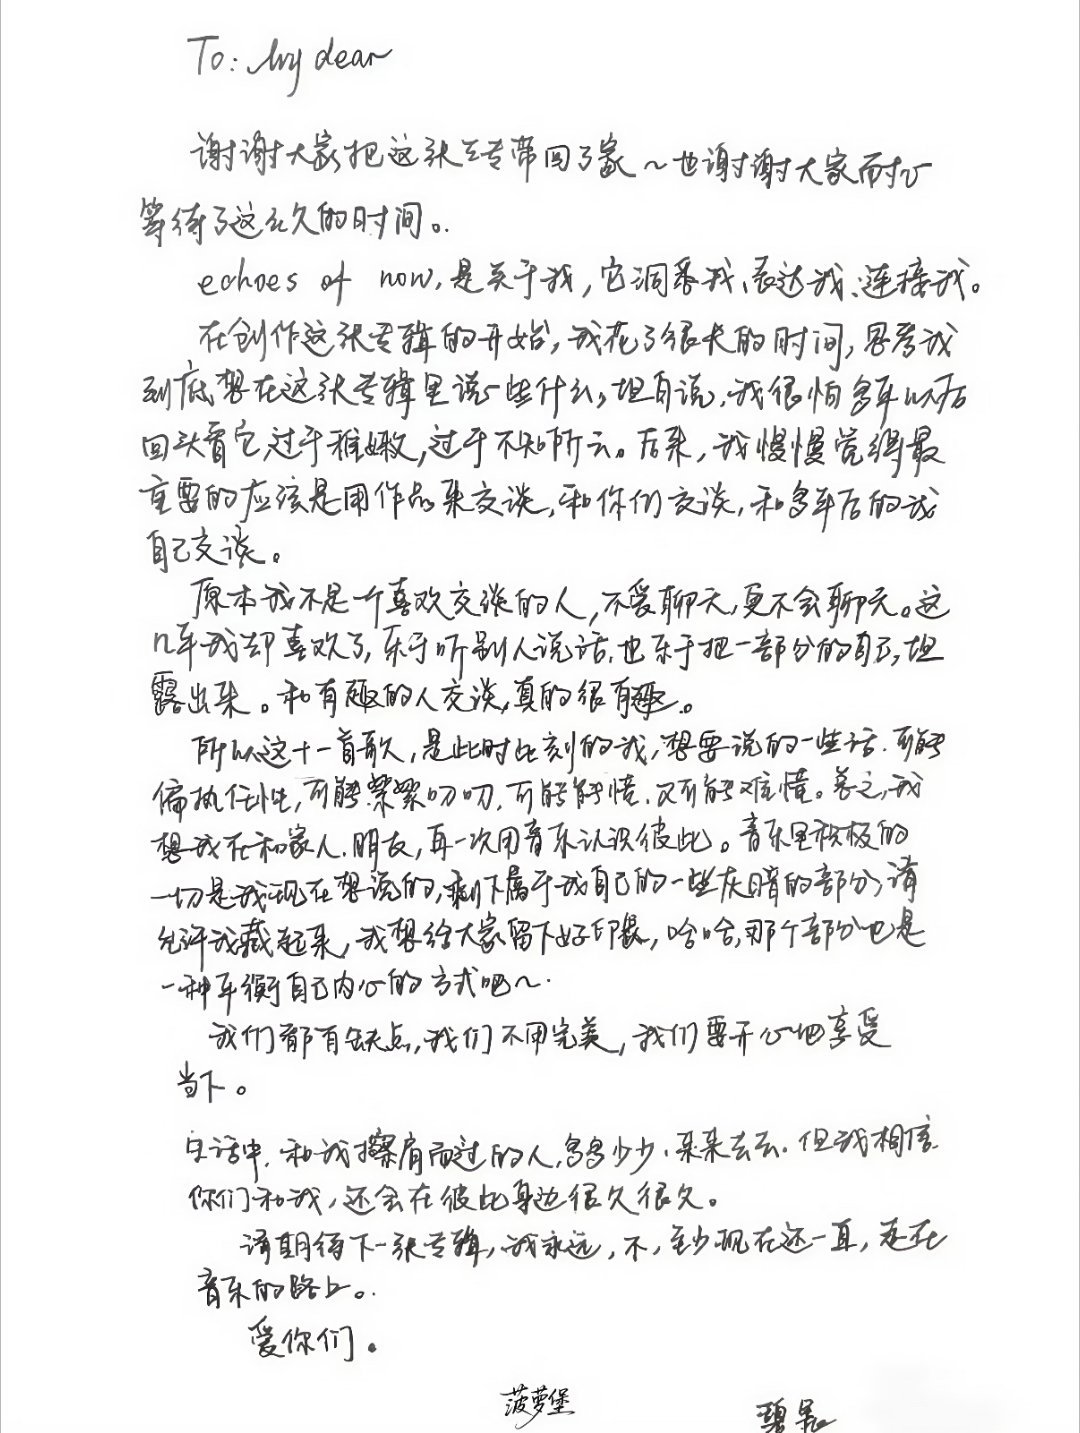 To: My dear
谢谢大家把这张专带回了家～也谢谢大家耐心
等待了这么久的时间。
echoes of now, 是关于我，它洞悉我、表达我、连接我。
在创作这张专辑的开始，我花了很长的时间，思考我
到底想在这张专辑里说一些什么，坦白说，我很怕多年以后
回头看它，过于稚嫩，过于不知所云。后来，我慢慢觉得最
重要的应该是用作品来交谈，和你们交谈，和多年后的我
自己交谈。
原本我不是一个喜欢交谈的人，不爱聊天，更不会聊天。这
几年我却喜欢了，乐于听别人说话，也乐于把一部分的自己，坦
露出来。和有趣的人交谈，真的很有趣。
所以这十一首歌，是此时此刻的我，想要说的一些话，可能
偏执任性，可能絮絮叨叨，可能能懂，又可能难懂。总之，我
想我在和家人、朋友，再一次用音乐认识彼此。音乐里积极的
一切是我现在想说的，剩下属于我自己的一些灰暗的部分，请
允许我藏起来，我想给大家留下好印象，哈哈，那个部分也是
一种平衡自己内心的方式吧～
我们都有缺点，我们不用完美，我们要开心地享受
当下。
生活中，和我擦肩而过的人，多多少少，来来去去，但我相信
你们和我，还会在彼此身边很久很久。
请期待下一张专辑，我永远，不，至少现在还一直，走在
音乐的路上。
爱你们。
菠萝堡
碧晨